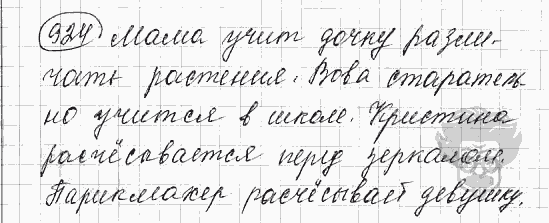 924 Мама учит дочку разли-
чать растения. Вова старатель-
но учится в школе. Кристина
расчёсывается перед зеркалом.
Парикмахер расчёсывает девушку.